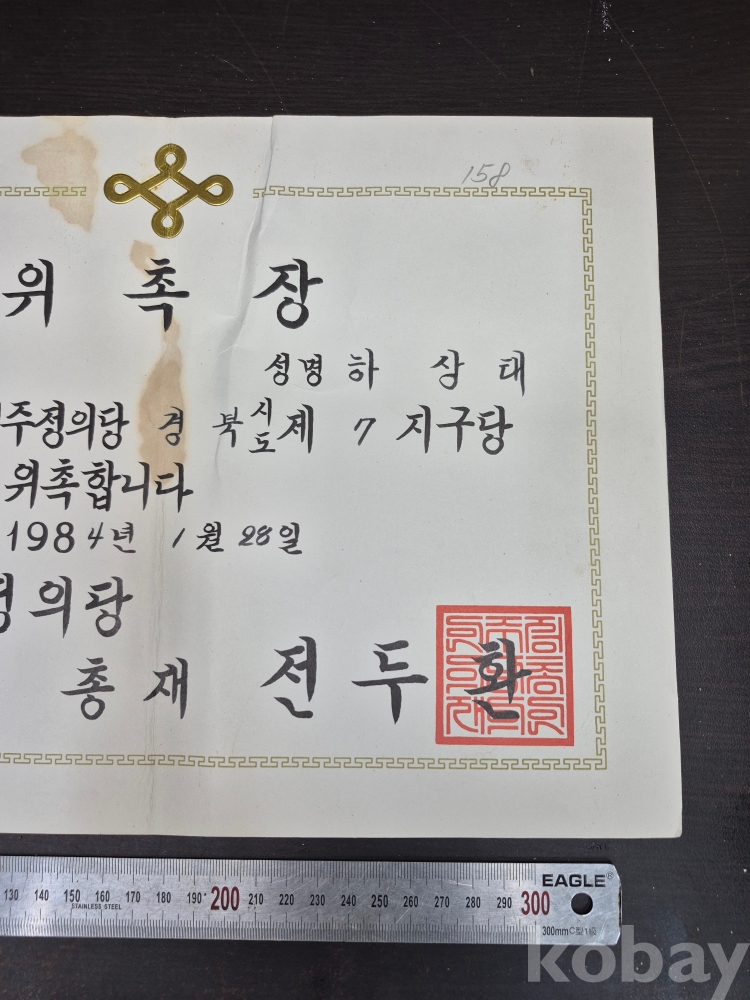 158
위 촉 장
성명 하 상 태
주정의당 경 북 시 도 제 7 지구당
위촉합니다
1984년 1월 28일
의당
총 재 전 두 환
130 140 150 160 170 180 190 200 210 220 230 240 250 260 270 280 290 300
STAINLESS STEEL
EAGLE®
300mm C型1級
kobay